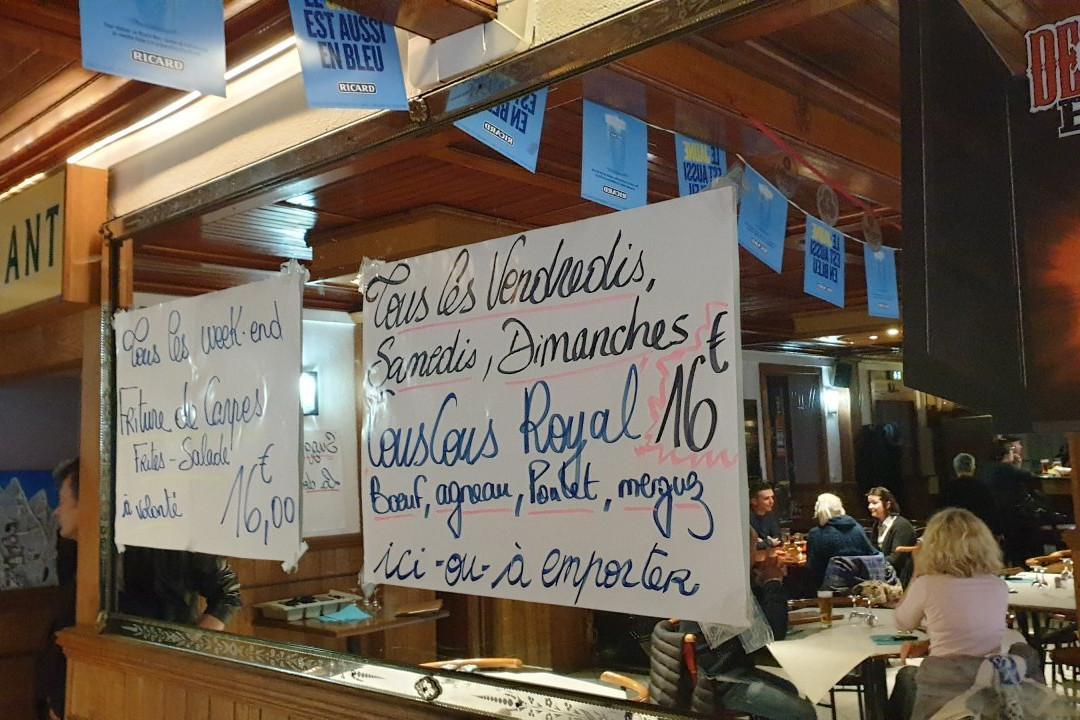 RICARD
EST AUSSI
EN BLEU
RICARD
EN BLEU
RICARD
RICARD
LE JAUNE
EST AUSSI
EN BLEU
LE JAUNE
EST AUSSI
EN BLEU
ANT
DE
Tous les week-end
Friture de Carpes
Frites - Salade
à volonté
16,00 €
Tous les Vendredis,
Samedis, Dimanches
CousCous Royal 16 €
Boeuf, agneau, Poulet, merguez
ici - ou - à emporter